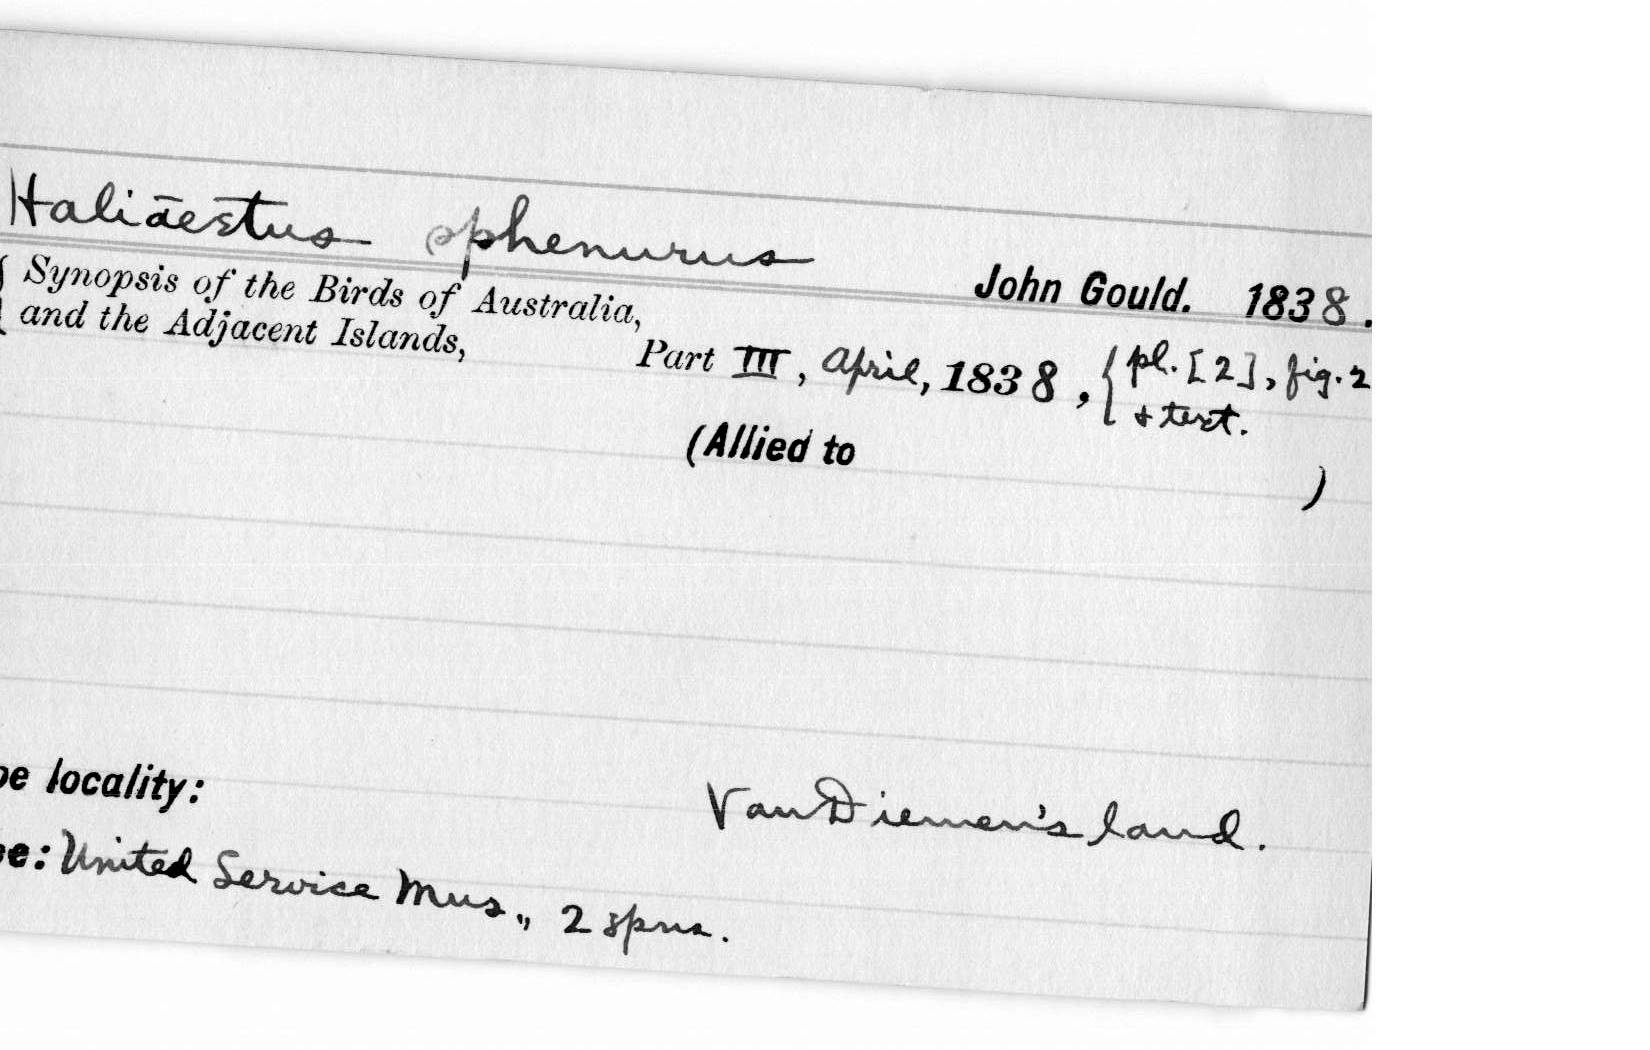 Haliāestus sphenurus
John Gould. 1838.
{ Synopsis of the Birds of Australia,
and the Adjacent Islands,
Part III, April, 1838, { pl. [2], fig. 2
& text.
(Allied to )
pe locality: Van Diemen's land.
pe: United Service Mus., 2 spns.